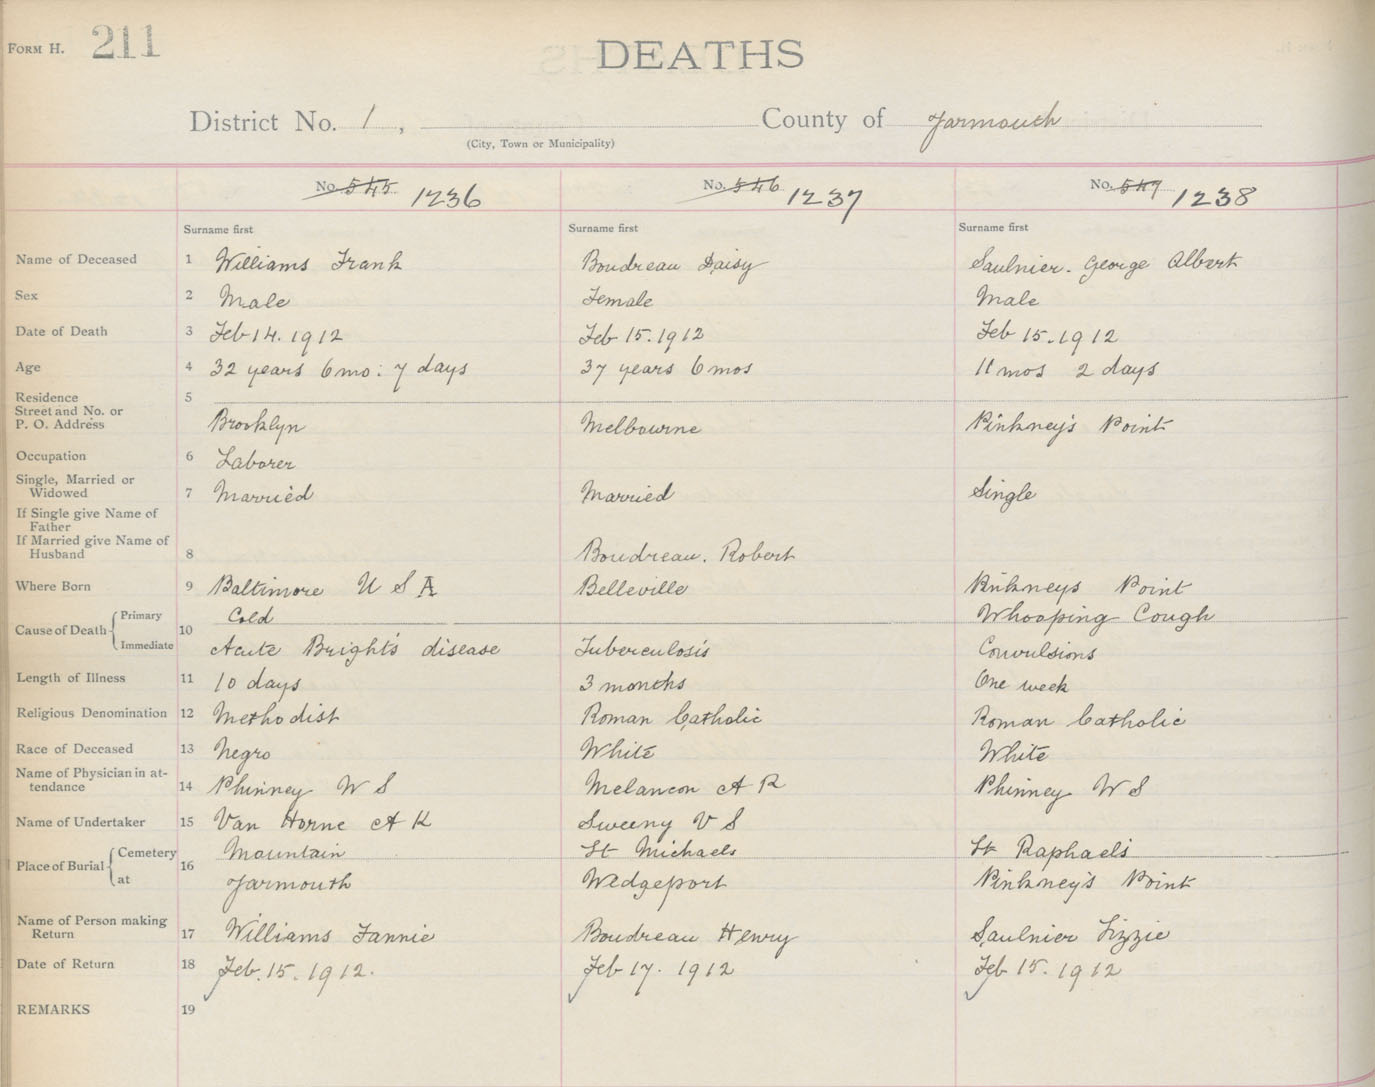 FORM H. 211
DEATHS
District No. 1, County of Yarmouth
(City, Town or Municipality)
No. 545 1236 No. 546 1237 No. 547 1238
Surname first Surname first Surname first
Name of Deceased 1 Williams Frank Boudreau Daisy Saulnier. George Albert
Sex 2 Male Female Male
Date of Death 3 Feb 14. 1912 Feb 15. 1912 Feb 15. 1912
Age 4 32 years 6 mo: 7 days 37 years 6 mos 11 mos 2 days
Residence 5
Street and No. or
P. O. Address Brooklyn Melbourne Pinkney's Point
Occupation 6 Laborer
Single, Married or
Widowed 7 Married Married Single
If Single give Name of
Father
If Married give Name of
Husband 8 Boudreau. Robert
Where Born 9 Baltimore U S A Belleville Pinkneys Point
Cause of Death 10 Primary Cold Whooping Cough
Immediate Acute Bright's disease Tuberculosis Convulsions
Length of Illness 11 10 days 3 months One week
Religious Denomination 12 Methodist Roman Catholic Roman Catholic
Race of Deceased 13 Negro White White
Name of Physician in at-
tendance 14 Phinney W S Melancon A R Phinney W S
Name of Undertaker 15 Van Horne A K Sweeny V S
Place of Burial 16 Cemetery Mountain St Michaels St Raphaels
at Yarmouth Wedgeport Pinkney's Point
Name of Person making
Return 17 Williams Fannie Boudreau Henry Saulnier Lizzie
Date of Return 18 Feb. 15. 1912. Feb 17. 1912 Feb 15. 1912
REMARKS 19